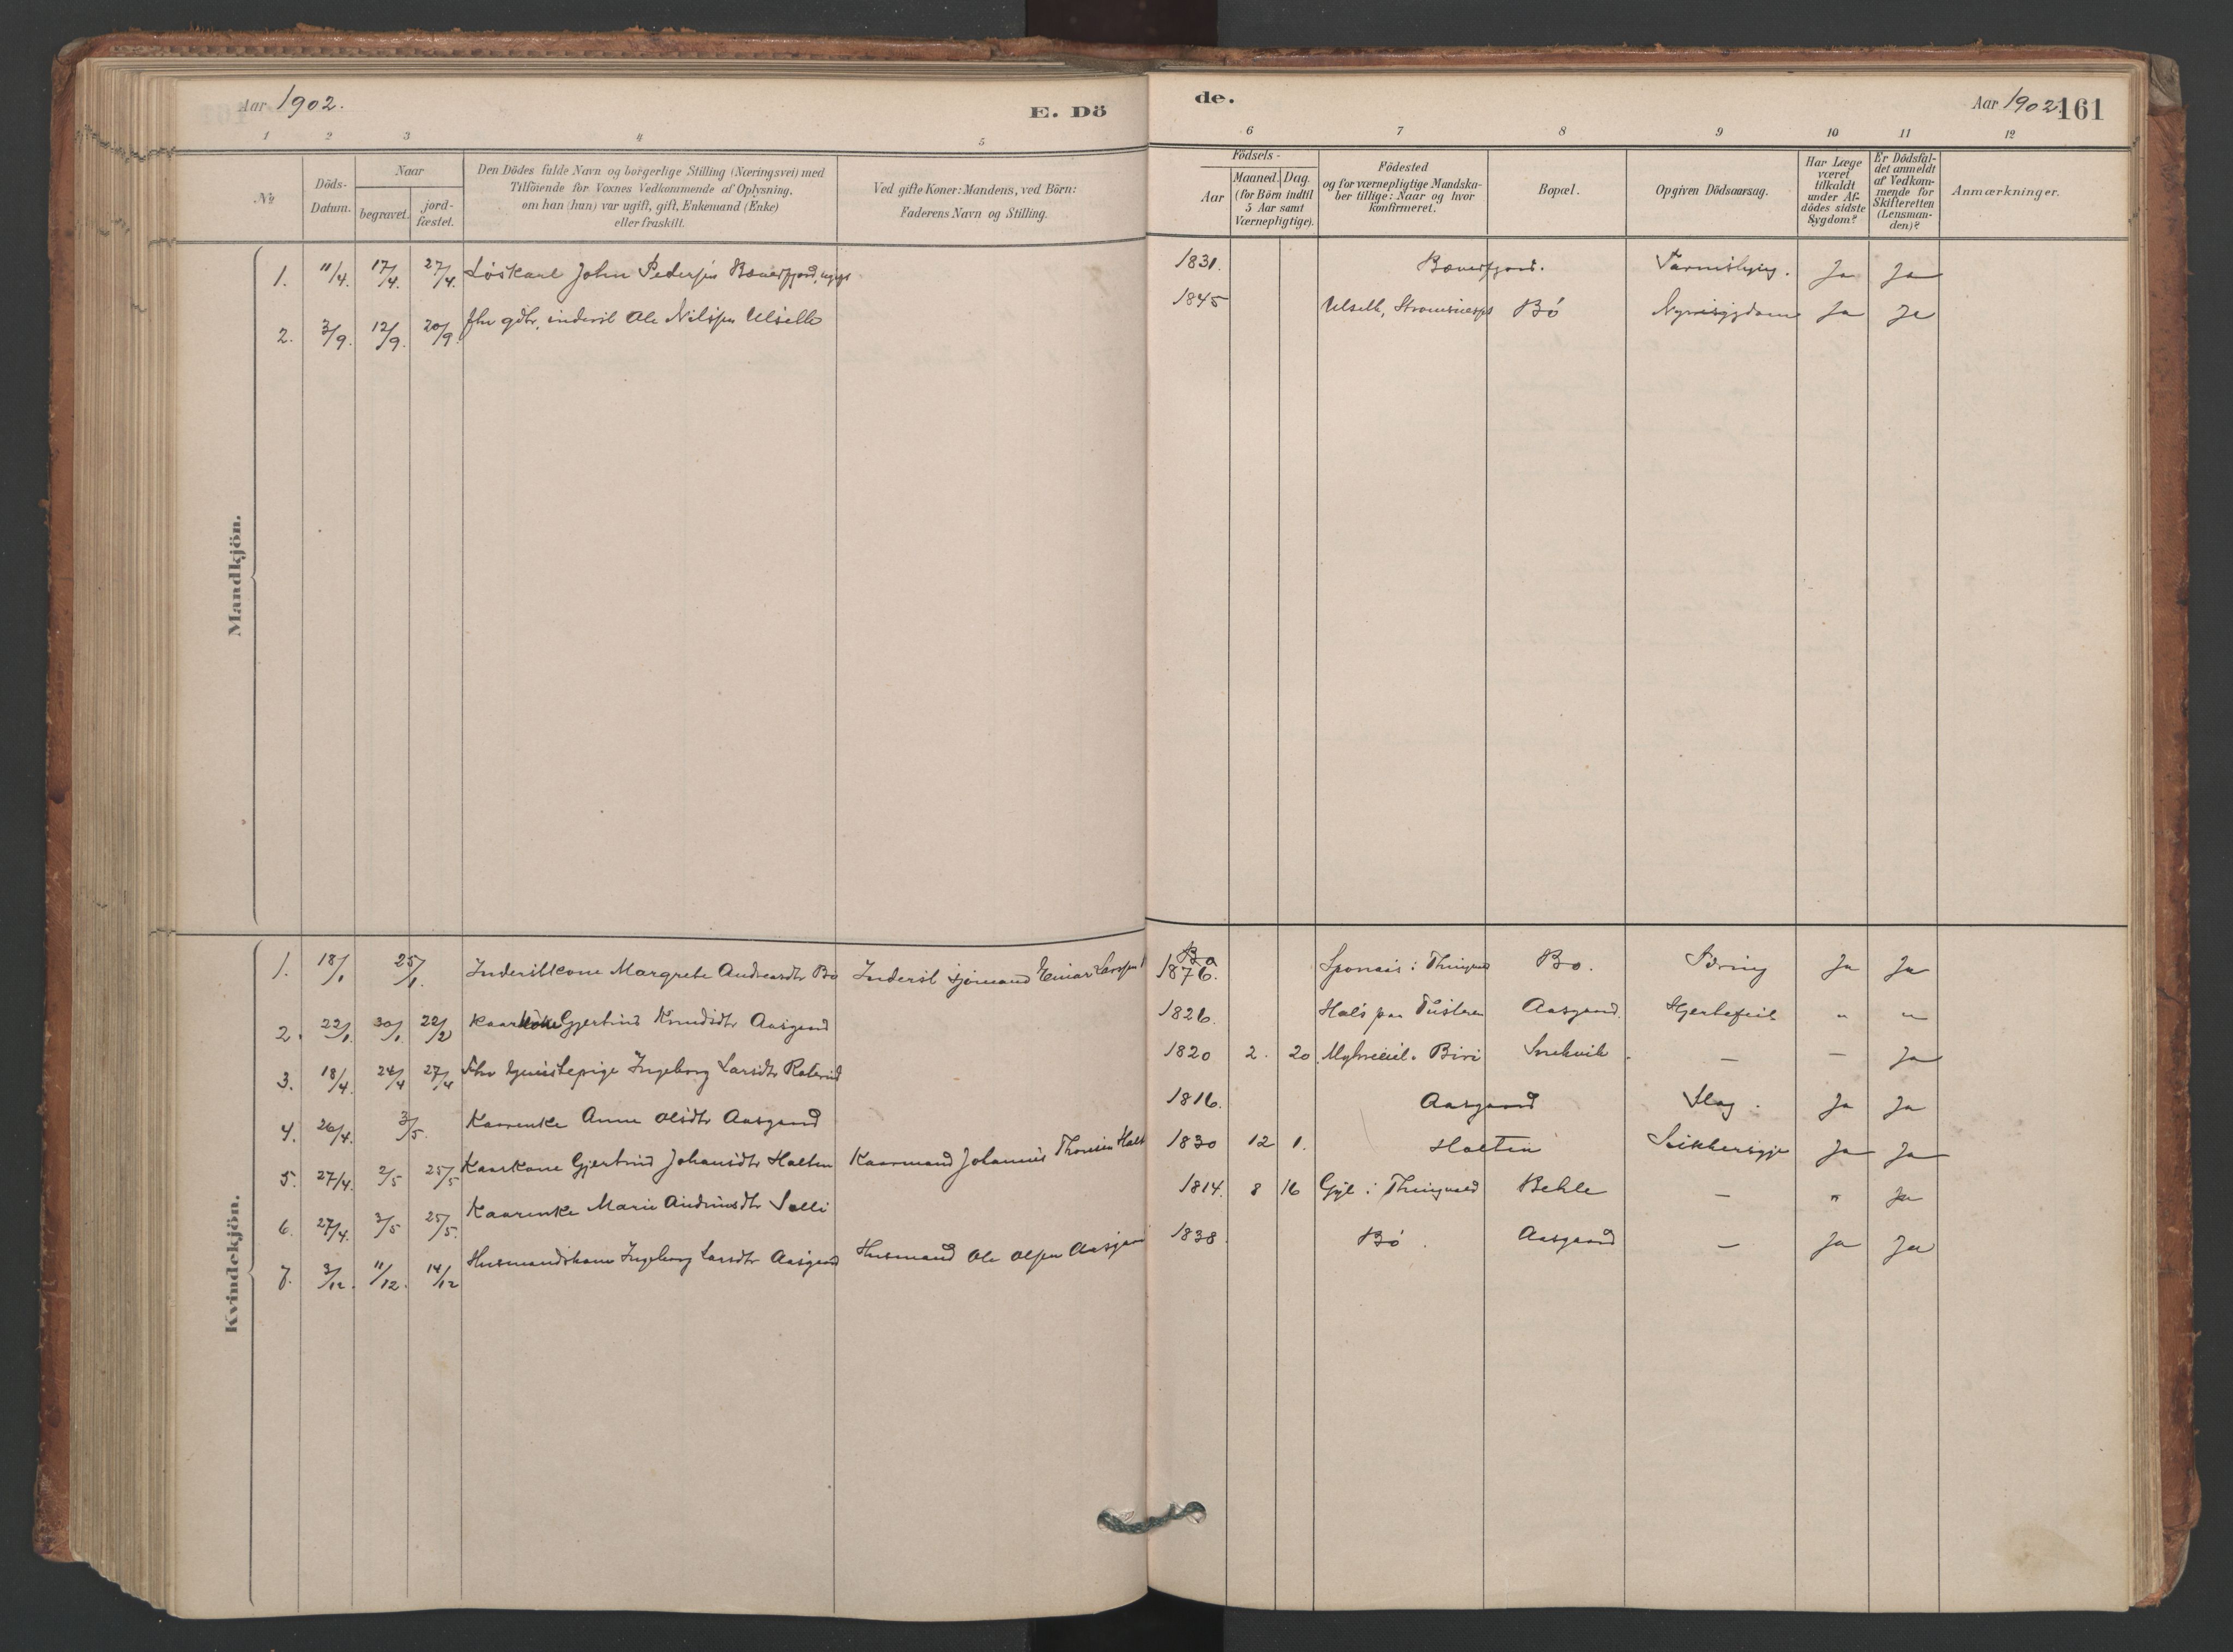 Aar 1902.
E. Dö
de.
Aar 1902. 161
1 2 3 4 5 6 7 8 9 10 11 12
№
Döds-Datum.
Naar
begravet.
jord-fæstet.
Den Dödes fulde Navn og borgerlige Stilling (Næringsvei) med
Tilföiende for Voxnes Vedkommende af Oplysning,
om han (hun) var ugift, gift, Enkemand (Enke)
eller fraskilt.
Ved gifte Koner: Mandens, ved Börn:
Faderens Navn og Stilling.
Födsels-
Aar
Maaned. Dag.
(for Börn indtil
5 Aar samt
Værnepligtige).
Födested
og for værnepligtige Mandska-
ber tillige: Naar og hvor
konfirmeret.
Bopæl.
Opgiven Dödsaarsag.
Har Læge
været
tilkaldt
under Af-
dödes sidste
Sygdom?
Er Dödsfal-
det anmeldt
af Vedkom-
mende for
Skifteretten
(Lensman-
den)?
Anmærkninger.
Mandkjön.
1. 11/4. 17/4. 27/4. Löskarl John Pedersen Bæverfjord, ugift 1831. Bæverfjord. Ja Ja
2. 3/9. 12/9. 20/9. fhv gdbr, inderst Ole Nilssen Ulsetb 1845 Ulsetb, Bö Nyresygdom Ja Ja
Kvindekjön.
1. 18/1 25/1. Inderstkone Margrete Andreasdtr Bö Inderst Einar Larssen Bö 1876. i Thingvold Bö. Tæring Ja Ja
2. 22/1. 30/1. 22/2 Kaarkone Gjertrud Knudsdtr Aasgaard 1826. Hals paa Tusteren Aasgaard. Hjertefeil " "
3. 18/4. 24/4 27/4 Fhv Ingeborg Larsdtr 1820 2. 20. Biri — — Ja
4. 26/4. 3/5. Kaarenke Anne Olsdtr Aasgaard 1816. Aasgaard Slag. Ja Ja
5. 27/4. 2/5 25/5 Kaarkone Gjertrud Johansdtr Halten Kaarmand Johannes Thoresen Halt 1830 12 1. Halten Sukkersyge Ja Ja
6. 27/4. 3/5 25/5. Kaarenke Marie 1814. 8 16 i Thingvold Behle — " Ja
7. 3/12. 11/12. 14/12 Husmandskone Ingeborg Larsdtr Aasgaard Husmand Ole Olsen Aasgaard 1838. Bö. Aasgaard — Ja Ja